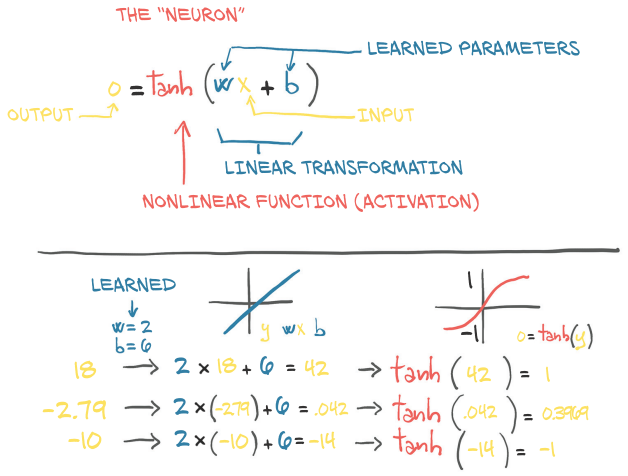 THE "NEURON"
LEARNED PARAMETERS
o = tanh (wx + b)
OUTPUT
INPUT
LINEAR TRANSFORMATION
NONLINEAR FUNCTION (ACTIVATION)
LEARNED
w = 2
b = 6
y wx b
1
-1
o = tanh(y)
18 → 2 × 18 + 6 = 42 → tanh (42) = 1
-2.79 → 2 × (-2.79) + 6 = .042 → tanh (.042) = 0.3969
-10 → 2 × (-10) + 6 = -14 → tanh (-14) = -1